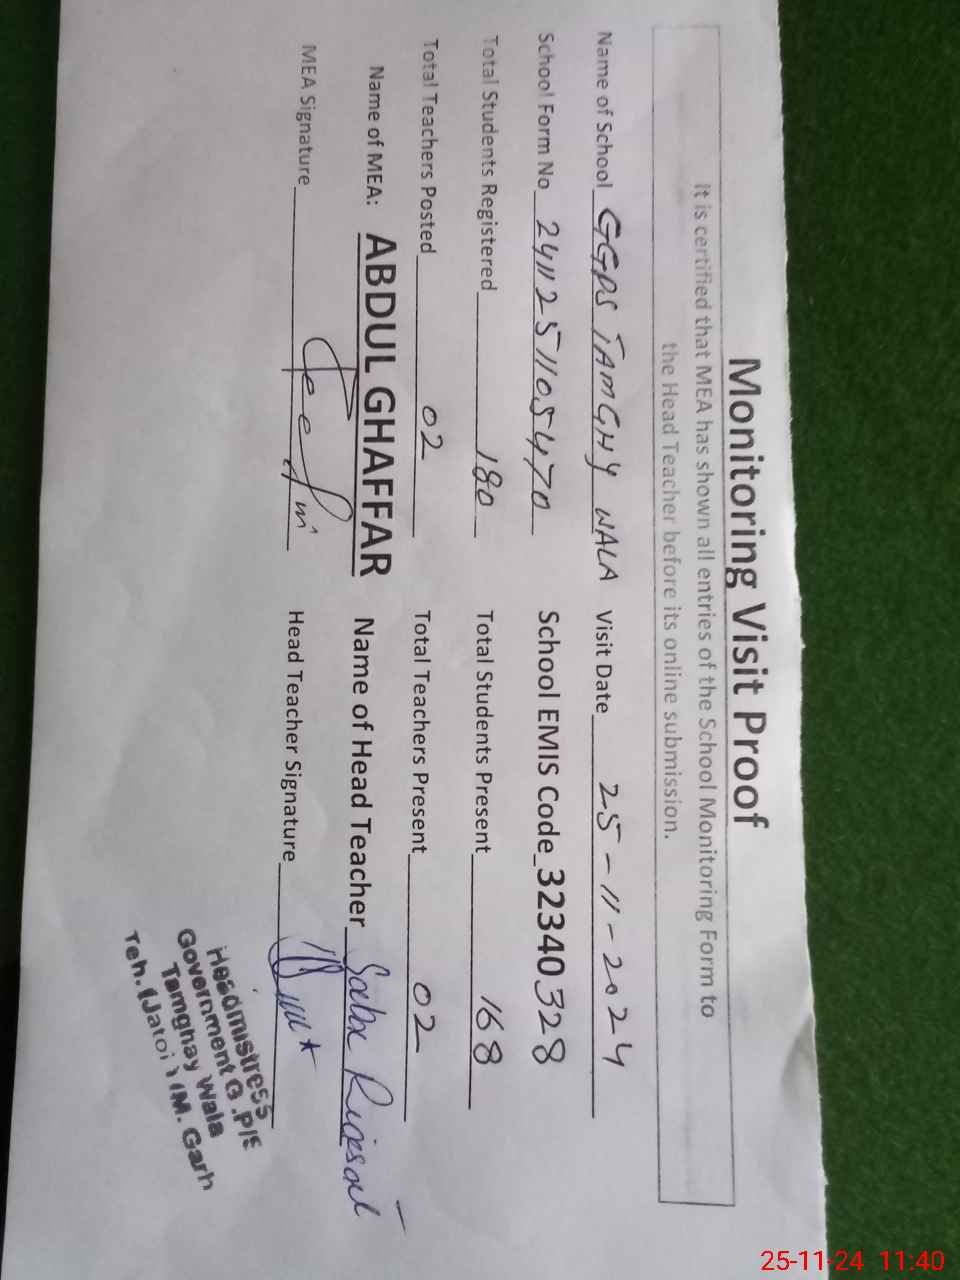 Monitoring Visit Proof
It is certified that MEA has shown all entries of the School Monitoring Form to
the Head Teacher before its online submission.
Name of School GGPS TAMGHY WALA Visit Date 25-11-2024
School Form No 2411251105470 School EMIS Code_32340328
Total Students Registered 180 Total Students Present 168
Total Teachers Posted 02 Total Teachers Present 02
Name of MEA: ABDUL GHAFFAR Name of Head Teacher
MEA Signature Head Teacher Signature
Headmistress
Government G.P/S
Tamghay Wala
Teh. (Jatoi) (M. Garh
25-11-24 11:40